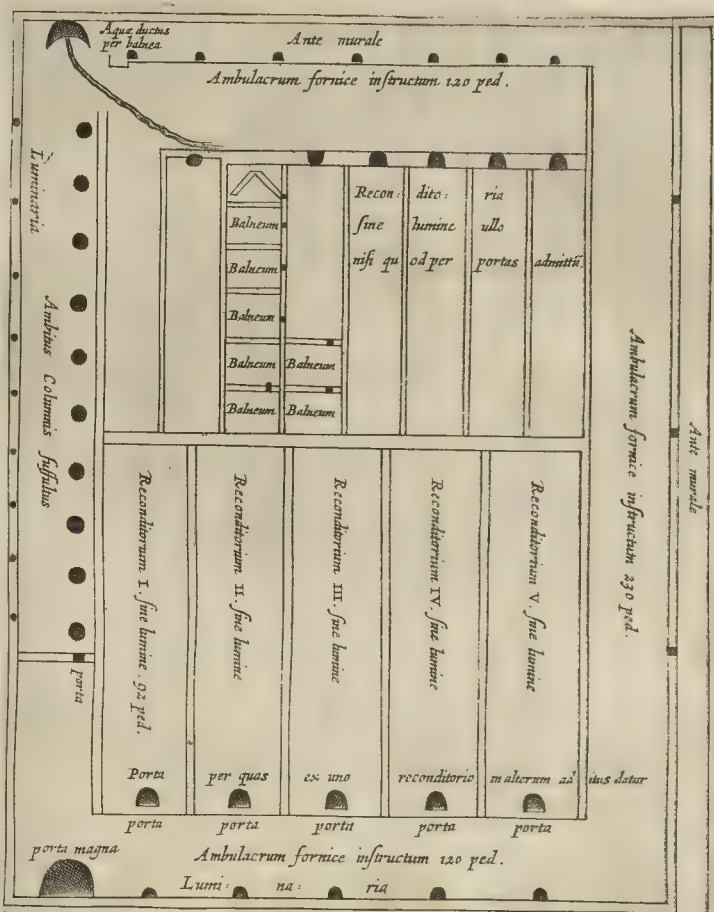 Aquæ ductus
per balnea
Ante murale
Ambulacrum fornice inſtructum 120 ped.
Luminaria
Ambitus Columnis ſuffultus
Recon: dito: ria
ſine lumine ullo
niſi qu od per portas admittũ.
Balneum
Balneum
Balneum
Balneum Balneum
Balneum Balneum
Ambulacrum fornice inſtructum 230 ped.
Ante murale
Reconditorium I. ſine lumine. 92 ped.
Reconditorium II. ſine lumine
Reconditorium III. ſine lumine
Reconditorium IV. ſine lumine
Reconditorium V. ſine lumine
porta
Porta per quas ex uno reconditorio in alterum ad itus datur
porta porta porta porta porta
porta magna
Ambulacrum fornice inſtructum 120 ped.
Lumi: na: ria